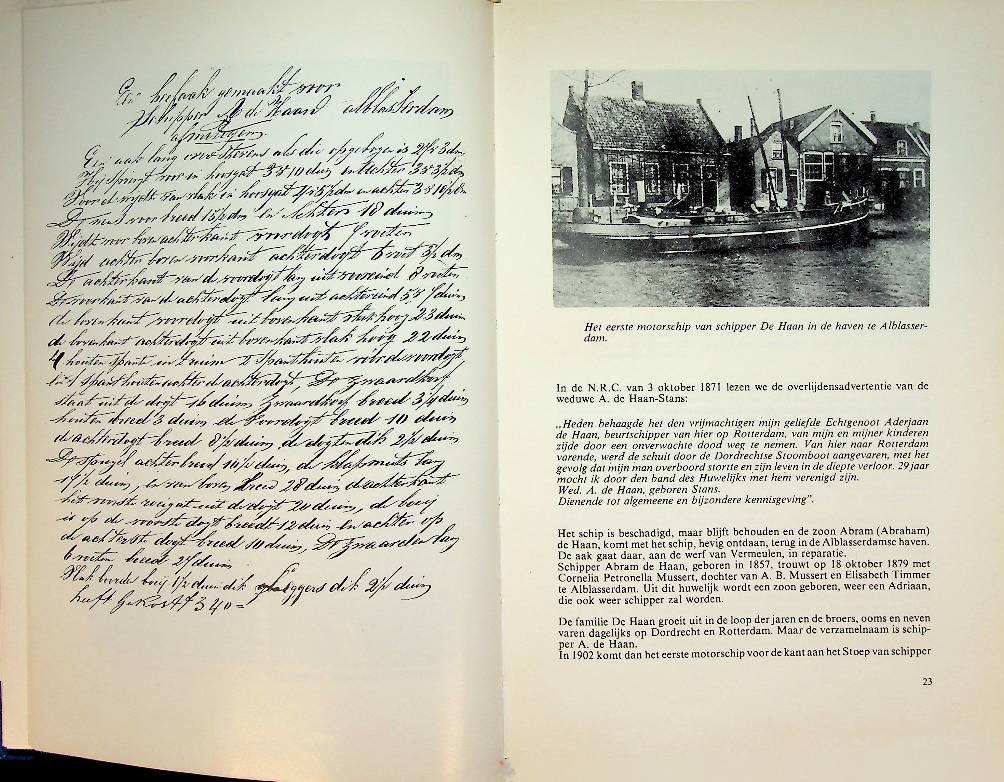 gemaakt voor
Schipper A de Haan alblasserdam
Een aak lang over Stevens als die opgebogen is
en achter
De voor breed 15½ dm en Achter 18 duim
Wijdt voor boven achterkant voordogt 7 voeten
Wijd achter boven voorkant achterdogt 6 voet 3½ dm
De achterkant van de voordogt lang uit vooreind 8 voeten
De voorkant van de achterdogt lang uit achtereind
de bovenkant voordogt uit bovenkant vlak hoog 23 duim
de bovenkant achterdogt uit bovenkant vlak hoog 22 duim
4 houten spant in t ruim voordogt
en 1 spant houten achter de achterdogt, De Zwaardkorf
staat uit de dogt 16 duim Zwaardkorf breed 3¼ duim
houten breed 3 duim de Voordogt breed 10 duim
de achterdogt breed 8½ duim de dogten dik 2½ duim
De spiegel achter breed 14½ duim, de lang
duim, en van boven breed 28 duim de achterkant
uit de dogt 20 duim, de boeij
is op de voorste dogt breedt 12 duim en achter op
de achterste dogt breed 10 duim, De Zwaarden lang
6 voeten breed duim
Vlak boorden boeij 1½ duim dik dik 2½ duim
heeft gekost f 340=
Het eerste motorschip van schipper De Haan in de haven te Alblasser-
dam.
In de N.R.C. van 3 oktober 1871 lezen we de overlijdensadvertentie van de
weduwe A. de Haan-Stans:
„Heden behaagde het den vrijmachtigen mijn geliefde Echtgenoot Aderjaan
de Haan, beurtschipper van hier op Rotterdam, van mijn en mijner kinderen
zijde door een onverwachte dood weg te nemen. Van hier naar Rotterdam
varende, werd de schuit door de Dordrechtse Stoomboot aangevaren, met het
gevolg dat mijn man overboord stortte en zijn leven in de diepte verloor. 29 jaar
mocht ik door den band des Huwelijks met hem verenigd zijn.
Wed. A. de Haan, geboren Stans.
Dienende tot algemeene en bijzondere kennisgeving”.
Het schip is beschadigd, maar blijft behouden en de zoon Abram (Abraham)
de Haan, komt met het schip, hevig ontdaan, terug in de Alblasserdamse haven.
De aak gaat daar, aan de werf van Vermeulen, in reparatie.
Schipper Abram de Haan, geboren in 1857, trouwt op 18 oktober 1879 met
Cornelia Petronella Mussert, dochter van A. B. Mussert en Elisabeth Timmer
te Alblasserdam. Uit dit huwelijk wordt een zoon geboren, weer een Adriaan,
die ook weer schipper zal worden.
De familie De Haan groeit uit in de loop der jaren en de broers, ooms en neven
varen dagelijks op Dordrecht en Rotterdam. Maar de verzamelnaam is schip-
per A. de Haan.
In 1902 komt dan het eerste motorschip voor de kant aan het Stoep van schipper
23